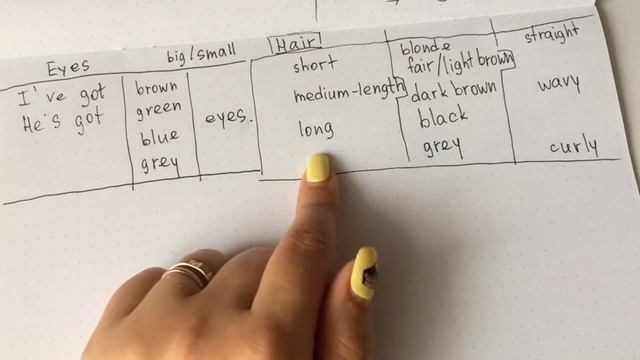 Eyes
big/small
I've got
He's got
brown
green
blue
grey
eyes.
Hair
short
medium-length
long
blonde
fair/light brown
dark brown
black
grey
straight
wavy
curly